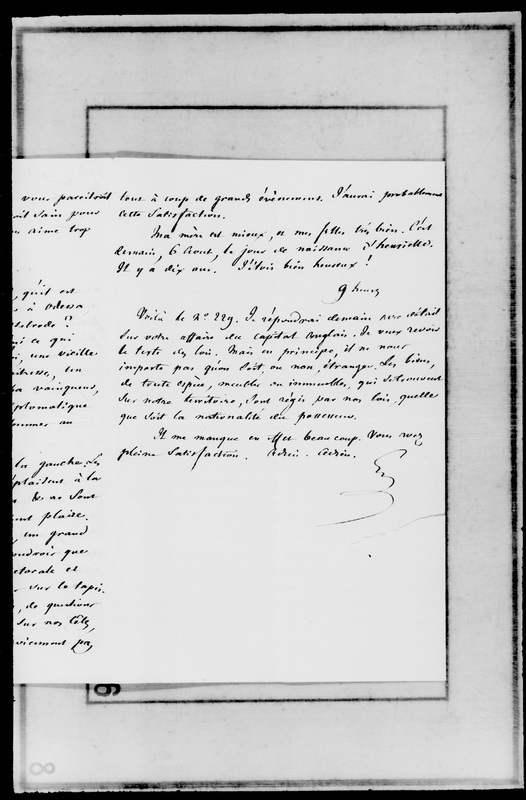 vous paroitroit
soit sain pour
aime trop
qu'il est
à Odessa
ce qui
une vieille
un
vainqueur,
diplomatique
au
la gauche. Les
à la
ne sont
plaise.
un grand
voudrois que
et
sur le tapis.
de questions
sur nos
pas
tout à coup de grands évènemens. J'aurai probablement
cette satisfaction.
Ma mère est mieux, et mes filles très bien. C'est
demain, 6 aout, le jour de naissance d'henriette.
Il y a dix ans. J'étois bien heureux !
9 heures
Voilà le N° 229. Je répondrai demain avec détail
sur votre affaire du capital anglais. Je veux revoir
le texte des lois. Mais en principe, il ne nous
importe pas qu'on soit, ou non, étranger. Les biens,
de toute espèce, meubles ou immeubles, qui se trouvent
sur notre territoire, sont régis par nos lois, quelle
que soit la nationalité du possesseur.
Il me manque en effet beaucoup. Vous avez
pleine satisfaction. Adieu. Adieu.
G
8